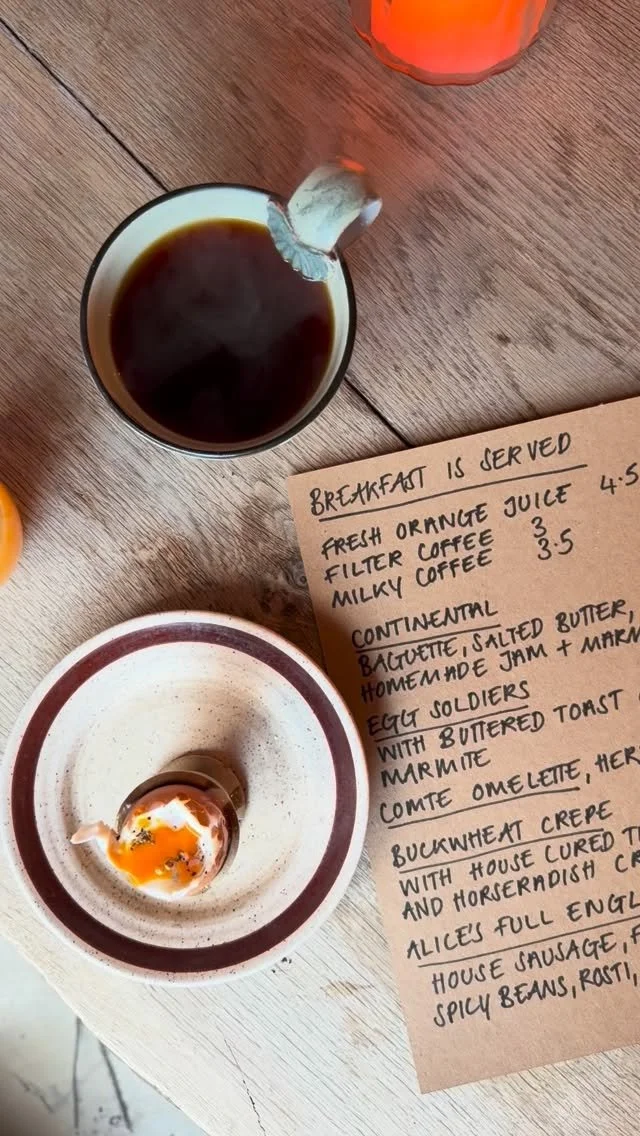 BREAKFAST IS SERVED
FRESH ORANGE JUICE 4.5
FILTER COFFEE 3
MILKY COFFEE 3.5
CONTINENTAL
BAGUETTE, SALTED BUTTER,
HOMEMADE JAM + MARM
EGG SOLDIERS
WITH BUTTERED TOAST
MARMITE
COMTE OMELETTE, HER
BUCKWHEAT CREPE
WITH HOUSE CURED T
AND HORSERADISH CR
ALICE'S FULL ENGL
HOUSE SAUSAGE, F
SPICY BEANS, ROSTI,